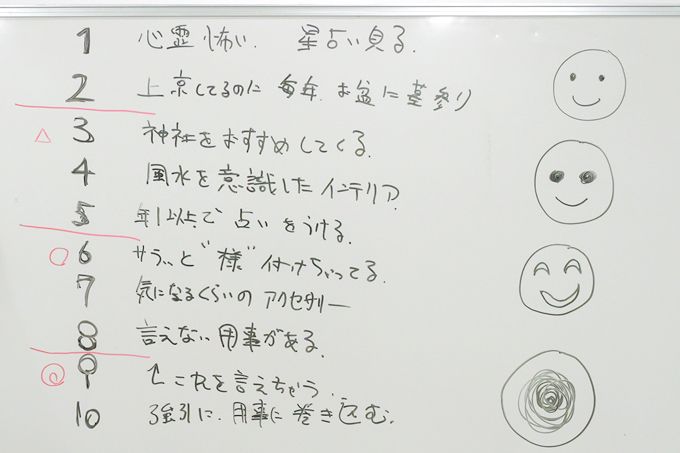 1 心霊怖い. 星占い見る.
2 上京してるのに 毎年 お盆に墓参り
△ 3 神社をおすすめしてくる.
4 風水を意識したインテリア.
5 年1以上で占いをうける.
○ 6 サラッと"様"付けちゃってる.
7 気になるくらいの アクセサリー
8 言えない用事がある.
◎ 9 ↑これを言えちゃう.
10 強引に.用事に巻き込む.